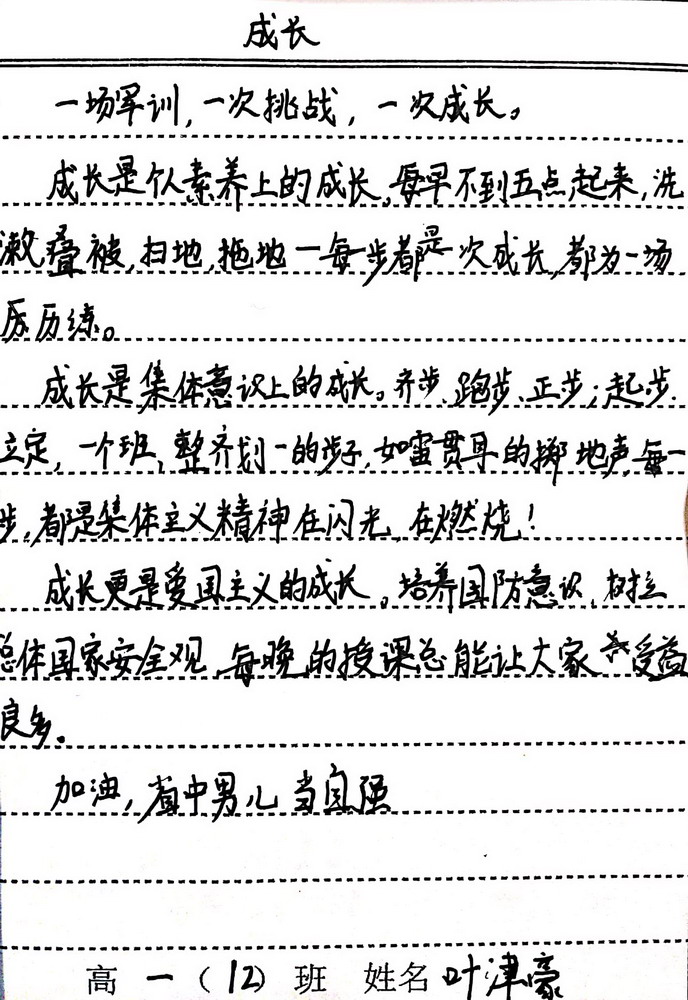 成长
一场军训,一次挑战,一次成长。
成长是个人素养上的成长,每早不到五点起来,洗
漱叠被,扫地,拖地一每步都是一次成长,都为一场
历练。
成长是集体意识上的成长。齐步、跑步、正步;起步.
立定,一个班,整齐划一的步子,如雷贯耳的掷地声,每一
步,都是集体主义精神在闪光,在燃烧!
成长更是爱国主义的成长。培养国防意识,树立
总体国家安全观,每晚的授课总能让大家受益
良多.
加油,省中男儿当自强
高一(12)班 姓名叶津豪